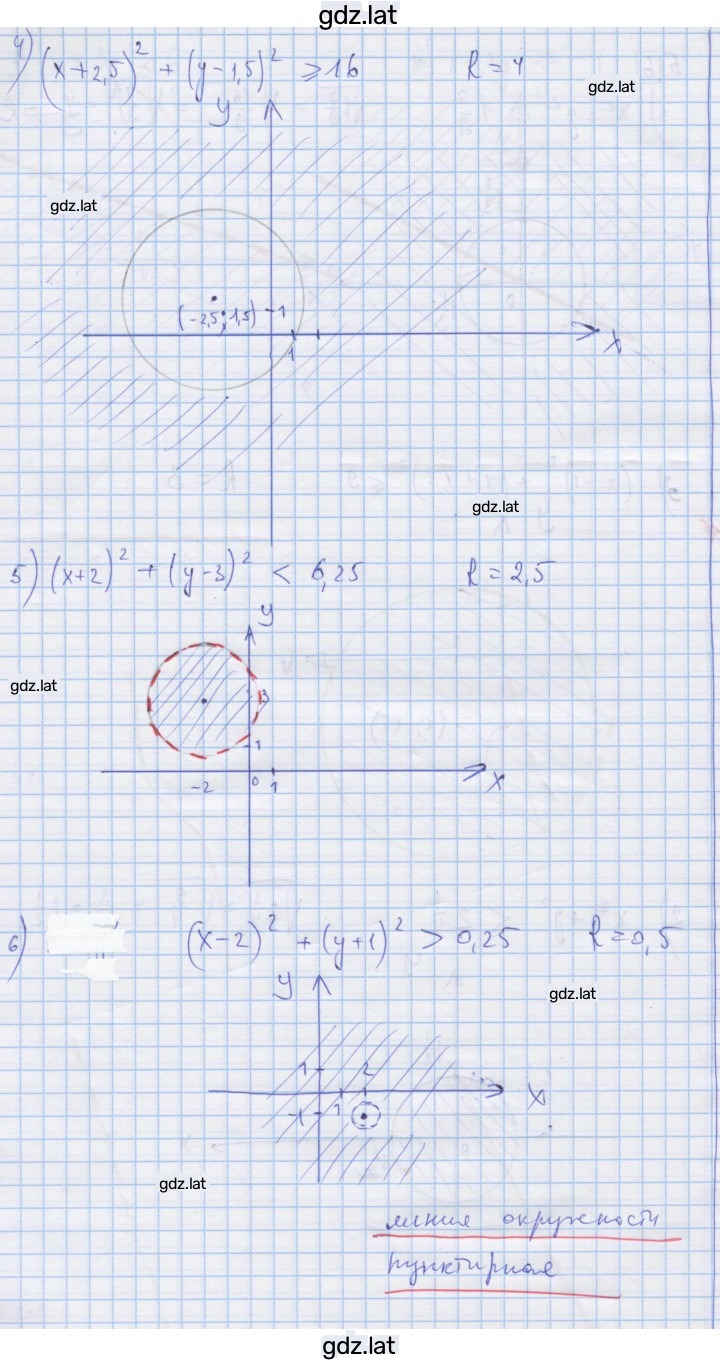 gdz.lat
4) (x+2,5)² + (y-1,5)² ⩾ 16 R = 4
gdz.lat
y
gdz.lat
(-2,5; 1,5) 1
1 x
gdz.lat
5) (x+2)² + (y-3)² < 6,25 R = 2,5
y
gdz.lat
3
1
-2 0 1 x
6) (x-2)² + (y+1)² > 0,25 R = 0,5
y
gdz.lat
1 2
x
-1 1
gdz.lat
линия окружности
пунктирная
gdz.lat